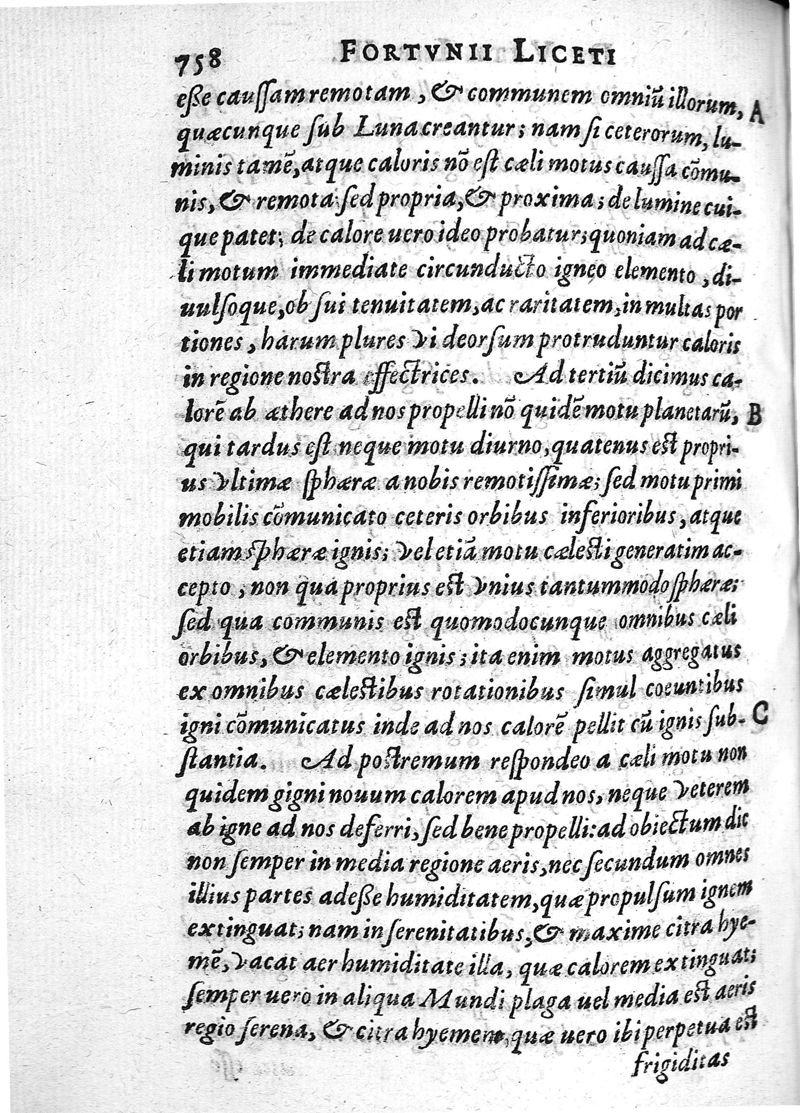 758 FORTVNII LICETI
eße cauſſam remotam, & communem omniũ illorum, A
quæcunque ſub Luna creantur; nam ſi ceterorum, lu-
minis tamẽ, atque caloris nõ eſt cæli motus cauſſa cõmu-
nis, & remota: ſed propria, & proxima; de lumine cui-
que patet; de calore uero ideo probatur; quoniam ad cæ-
li motum immediate circunducto igneo elemento, di-
uulſoque, ob ſui tenuitatem, ac raritatem, in multas por
tiones, harum plures vi deorſum protruduntur caloris
in regione noſtra effectrices. Ad tertiũ dicimus ca-
lorẽ ab æthere ad nos propelli nõ quidẽ motu planetarũ, B
qui tardus eſt neque motu diurno, quatenus eſt propri-
us vltimæ ſphæræ a nobis remotiſſimæ; ſed motu primi
mobilis cõmunicato ceteris orbibus inferioribus, atque
etiam ſphæræ ignis; vel etiã motu cæleſti generatim ac-
cepto, non qua proprius eſt vnius tantummodo ſphæræ;
ſed qua communis eſt quomodocunque omnibus cæli
orbibus, & elemento ignis; ita enim motus aggregatus
ex omnibus cæleſtibus rotationibus ſimul coeuntibus
igni cõmunicatus inde ad nos calorẽ pellit cũ ignis ſub- C
ſtantia. Ad poſtremum reſpondeo a cæli motu non
quidem gigni nouum calorem apud nos, neque veterem
ab igne ad nos deferri, ſed bene propelli: ad obiectum dic
non ſemper in media regione aeris, nec ſecundum omnes
illius partes adeße humiditatem, quæ propulſum ignem
extinguat; nam in ſerenitatibus, & maxime citra hye-
mẽ, vacat aer humiditate illa, quæ calorem extinguat;
ſemper uero in aliqua Mundi plaga uel media eſt aeris
regio ſerena, & citra hyemem, quæ uero ibi perpetua eſt
frigiditas